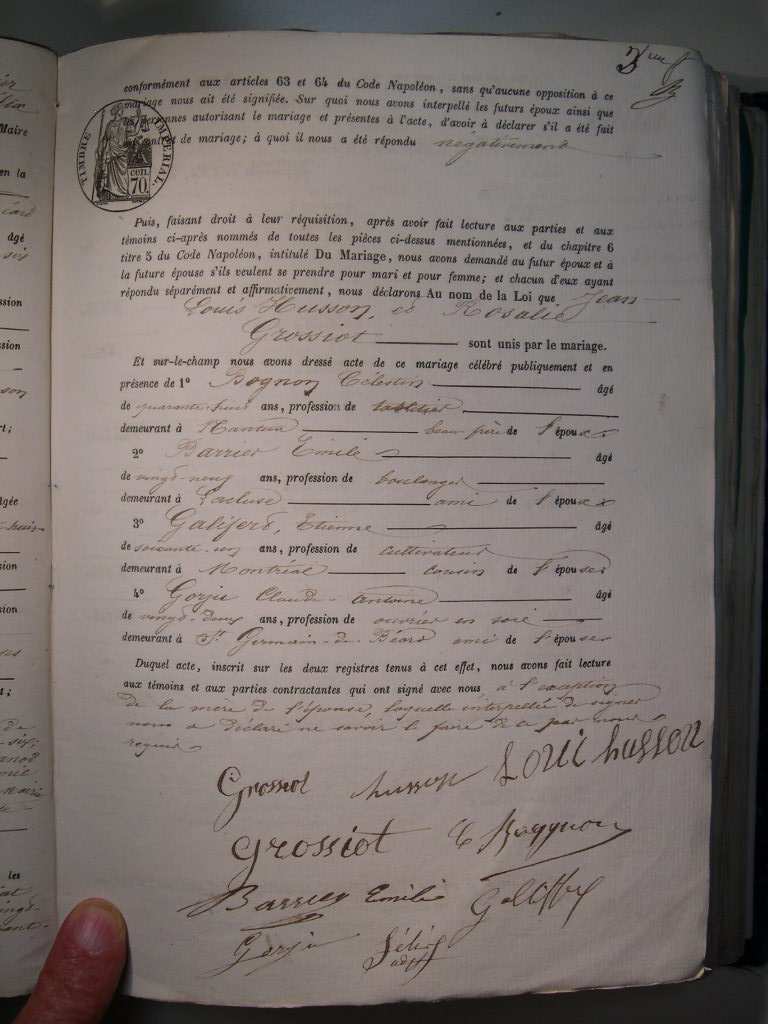 conformément aux articles 63 et 64 du Code Napoléon, sans qu'aucune opposition à ce
mariage nous ait été signifiée. Sur quoi nous avons interpellé les futurs époux ainsi que
personnes autorisant le mariage et présentes à l'acte, d'avoir à déclarer s'il a été fait
de mariage; à quoi il nous a été répondu négativement
TIMBRE IMPÉRIAL
CEN. 70.
Puis, faisant droit à leur réquisition, après avoir fait lecture aux parties et aux
témoins ci-après nommés de toutes les pièces ci-dessus mentionnées, et du chapitre 6
titre 5 du Code Napoléon, intitulé Du Mariage, nous avons demandé au futur époux et à
la future épouse s'ils veulent se prendre pour mari et pour femme; et chacun d'eux ayant
répondu séparément et affirmativement, nous déclarons Au nom de la Loi que Jean
Louis Husson, et Rosalie
Grossiot sont unis par le mariage.
Et sur-le-champ nous avons dressé acte de ce mariage célébré publiquement et en
présence de 1º Bognon Célestin âgé
de ans, profession de tabletier
demeurant à Nantua beau père de l'époux
2º Barrier Emile âgé
de vingt-neuf ans, profession de boulanger
demeurant à Lacluse ami de l'époux
3º Galiferd, Etienne âgé
de soixante-un ans, profession de cultivateur
demeurant à Montréal cousin de l'épouse
4º Gorju Claude-Antoine âgé
de vingt-deux ans, profession de ouvrier en soie
demeurant à St Germain-de-Béard ami de l'épouse
Duquel acte, inscrit sur les deux registres tenus à cet effet, nous avons fait lecture
aux témoins et aux parties contractantes qui ont signé avec nous à l'exception
de la mère de l'épouse, laquelle interpellée de signer
nous a déclaré ne savoir le faire de ce par nous
requise
Grossiot husson Loui husson
Grossiot C Bognon
Barrier Emile
Gorju